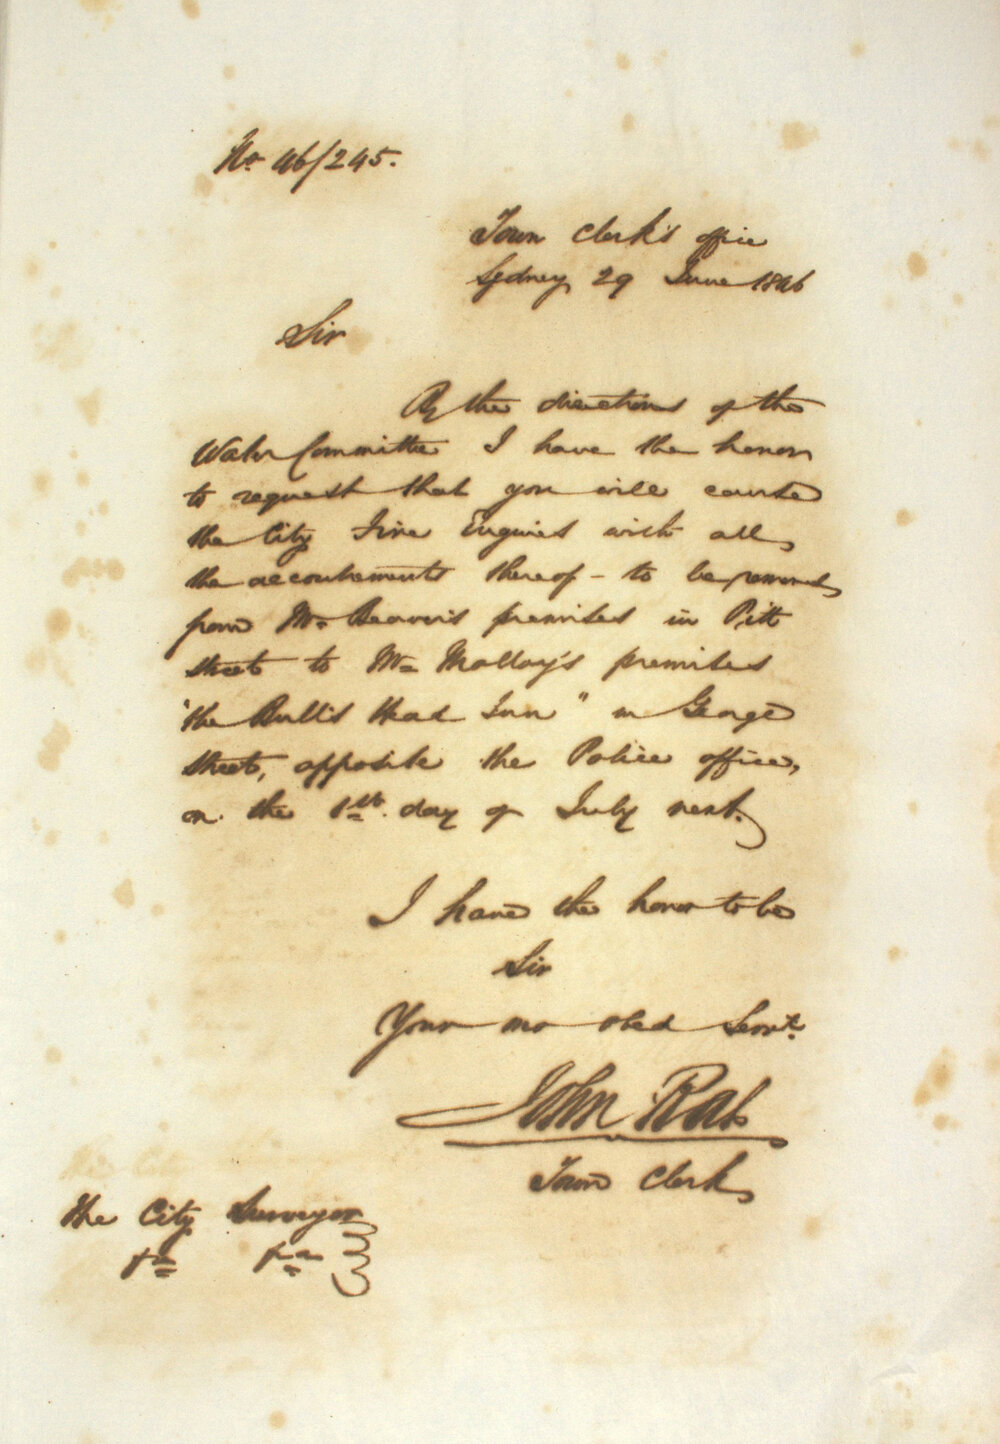 No. 46/245.
Town Clerk's office
Sydney 29 June 1846
Sir
By the directions of the
Water Committee I have the honor
to request that you will cause
the City Fire Engines with all
the accoutrements thereof - to be removed
from Mr. Beaver's premises in Pitt
Street to Mr Molloy's premises
"the Bull's Head Inn" in George
Street, opposite the Police office,
on the 1st. day of July next.
I have the honor to be
Sir
Your mo obed Servt.
John Rae
Town Clerk
The City Surveyor